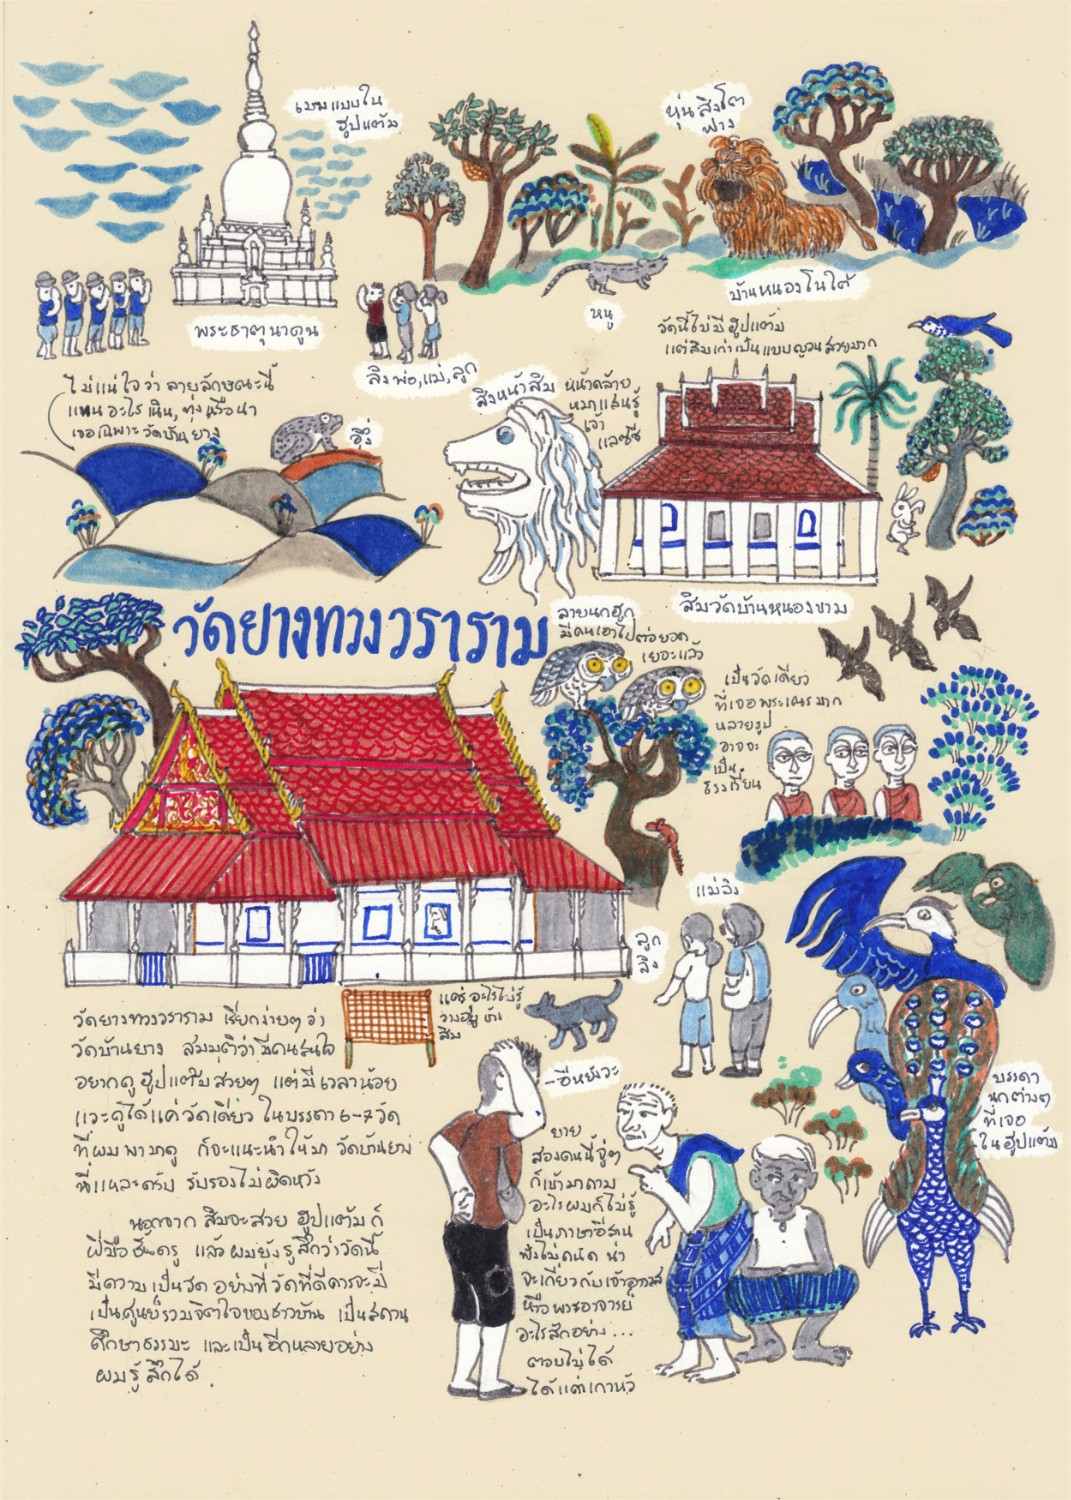 เมฆแบบใน
ฮูปแต้ม
หุ่นสิงโต
ฟาง
พระธาตุนาดูน
ลิงพ่อ,แม่,ลูก
หนู
บ้านหนองโนใต้
วัดนี้ไม่มีฮูปแต้ม
แต่สิมเก่าเป็นแบบญวนสวยมาก
ไม่แน่ใจว่าลายลักษณะนี้
แทนอะไร เนิน, ทุ่งหรือนา
เจอเฉพาะวัดบ้านยาง
อึ่ง
สิงหน้าสิม
หน้าคล้าย
หมาแสนรู้
เจ้า
แลซซี่
สิมวัดบ้านหนองขาม
วัดยางทวงวราราม
ลายนกฮูก
มีคนเอาไปต่อยอด
เยอะแล้ว
เป็นวัดเดียว
ที่เจอพระเณรมาก
หลายรูป
อาจจะ
เป็น
โรงเรียน
แม่ลิง
ลูก
ลิง
แคร่อะไรไม่รู้
วางอยู่ข้าง
สิม
วัดยางทวงวราราม เรียกง่ายๆ ว่า
วัดบ้านยาง สมมุติว่ามีคนสนใจ
อยากดูฮูปแต้มสวยๆ แต่มีเวลาน้อย
แวะดูได้แค่วัดเดียว ในบรรดา 6-7 วัด
ที่ผมพามาดู ก็จะแนะนำให้มา วัดบ้านยาง
นี่แหละครับ รับรองไม่ผิดหวัง
นอกจาก สิมจะสวย ฮูปแต้มก็
ฝีมือชั้นครู แล้วผมยังรู้สึกว่าวัดนี้
มีความเป็นวัด อย่างที่วัดที่ดีควรจะมี
เป็นศูนย์รวมจิตใจของชาวบ้าน เป็นสถาน
ศึกษาธรรมะ และเป็นอีกหลายอย่าง
ผมรู้สึกได้
-อีหยังวะ
ยาย
สองคนนี้จู่ๆ
ก็เข้ามาถาม
อะไรผมก็ไม่รู้
เป็นภาษาอีสาน
ฟังไม่ถนัด น่า
จะเกี่ยวกับเจ้าอาวาส
หรือพระอาจารย์
อะไรสักอย่าง...
ตอบไม่ได้
ได้แต่เกาหัว
บรรดา
นกต่างๆ
ที่เจอ
ในฮูปแต้ม